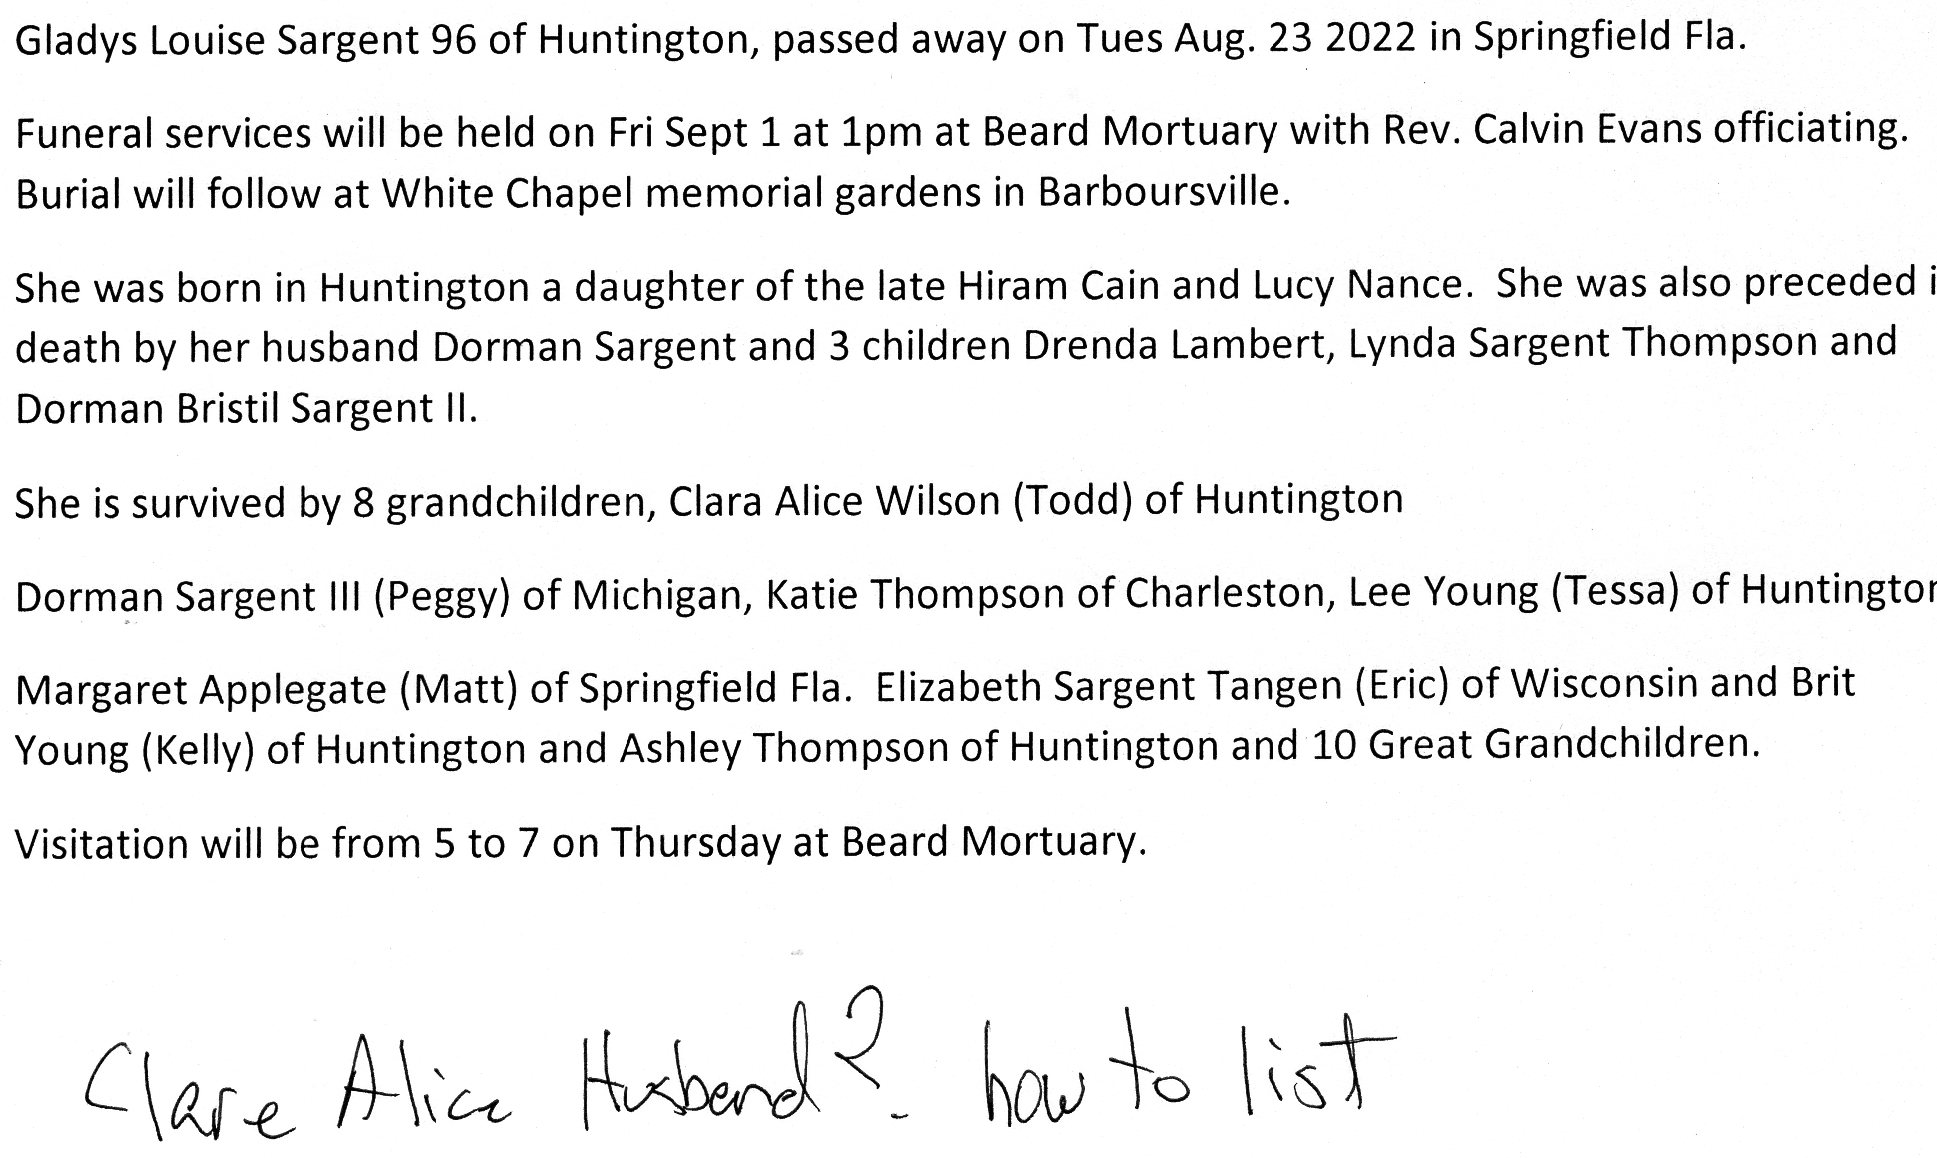 Gladys Louise Sargent 96 of Huntington, passed away on Tues Aug. 23 2022 in Springfield Fla.
Funeral services will be held on Fri Sept 1 at 1pm at Beard Mortuary with Rev. Calvin Evans officiating.
Burial will follow at White Chapel memorial gardens in Barboursville.
She was born in Huntington a daughter of the late Hiram Cain and Lucy Nance. She was also preceded i
death by her husband Dorman Sargent and 3 children Drenda Lambert, Lynda Sargent Thompson and
Dorman Bristil Sargent II.
She is survived by 8 grandchildren, Clara Alice Wilson (Todd) of Huntington
Dorman Sargent III (Peggy) of Michigan, Katie Thompson of Charleston, Lee Young (Tessa) of Huntington
Margaret Applegate (Matt) of Springfield Fla. Elizabeth Sargent Tangen (Eric) of Wisconsin and Brit
Young (Kelly) of Huntington and Ashley Thompson of Huntington and 10 Great Grandchildren.
Visitation will be from 5 to 7 on Thursday at Beard Mortuary.
Clare Alice Husband? how to list